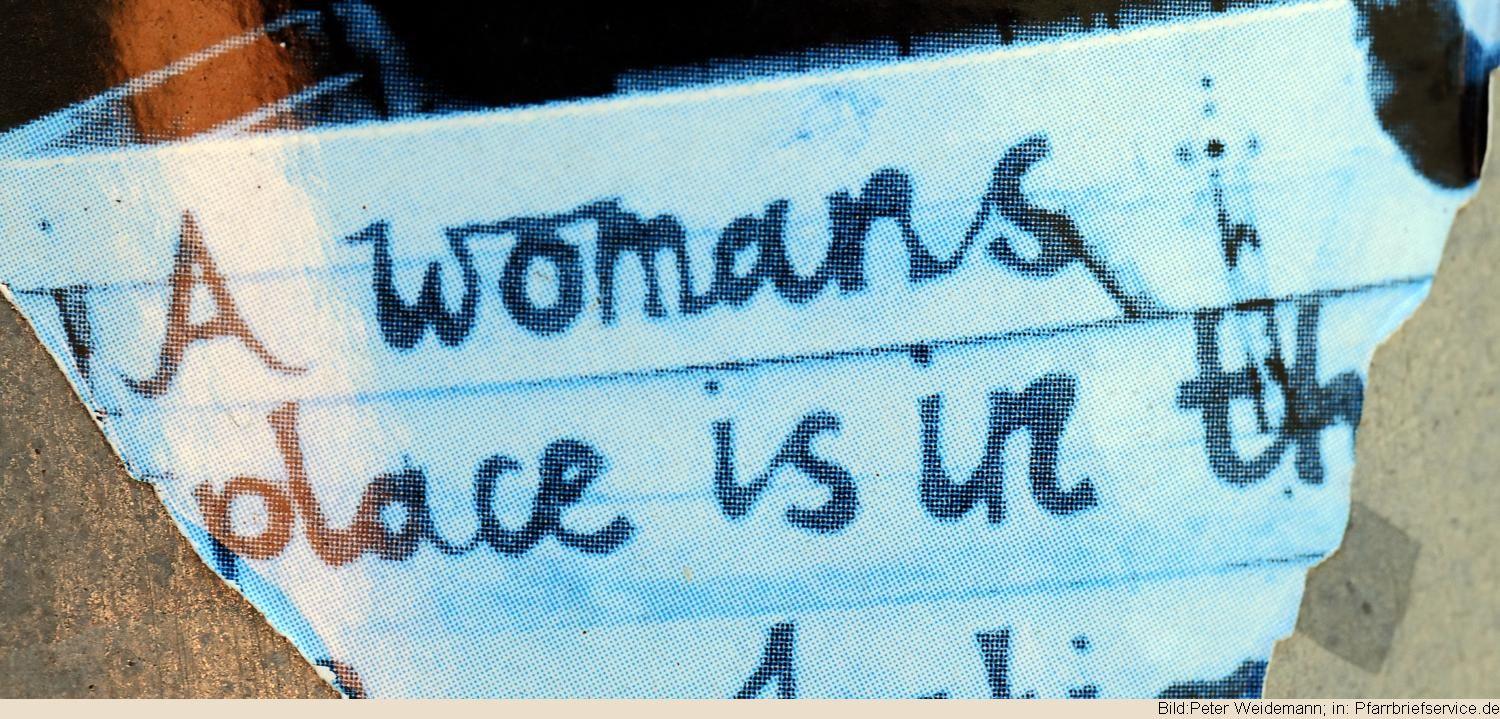 A womans
place is in th
Bild:Peter Weidemann; in: Pfarrbriefservice.de